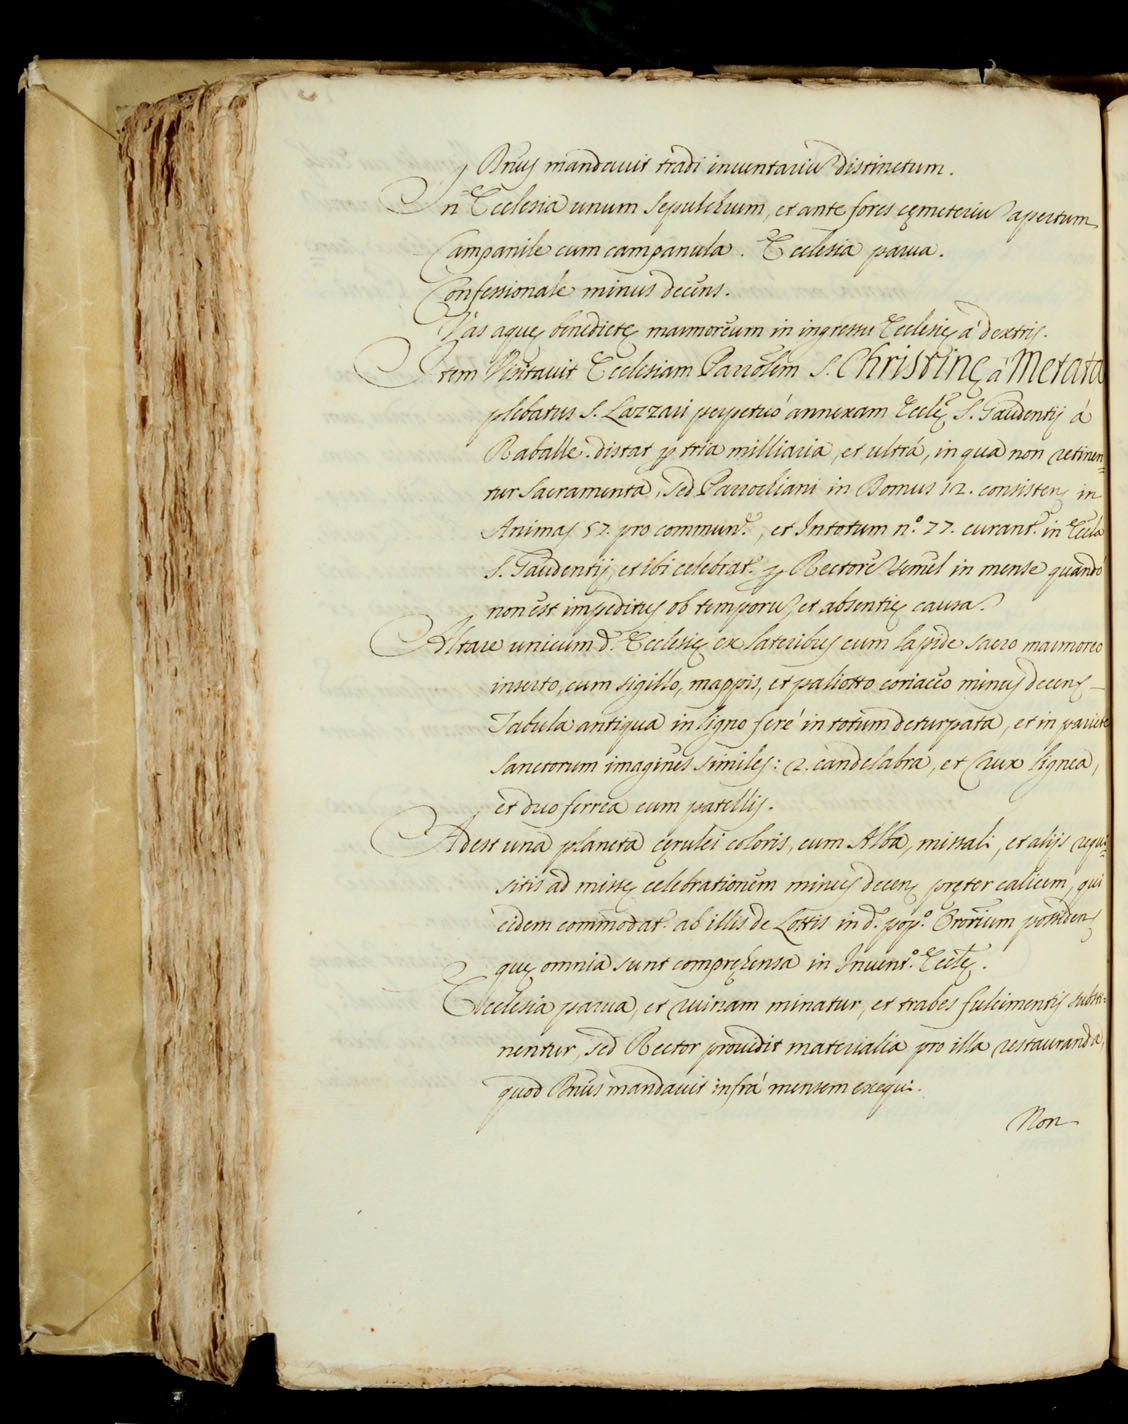 D'nus mandavit tradi inventariu distinctum.
In Ecclesia unum sepulchrum, et ante fores cęmeteriu apertum
Campanile cum campanula. Ecclesia parva.
Confessionale minus decens.
Vas aquę benedictę marmoreum in ingressu Ecclesię á dextris.
Item Visitavit Ecclesiam Parro'lem S. Christinę á Metata
plebatus S. Lazzari perpetuó annexam Eccl'ę S. Gaudentij á
Raballe. distat p tria milliaria, et ultrá, in qua non retinen=
tur Sacramenta, sed Parrochiani in Domus 12. consistens in
Animas 57. pro commun.e, et In totum n.o 77. curant.r in Eccl'a
S. Gaudentij, et ibi celebrat.r p Rectore semel in mense quando
non est impeditus ob temporis, et absentię causa.
Altare unicum d.ę Ecclesię ex lateribus cum lapide sacro marmoreo
inserto, cum sigillo, mappis, et paliotto coriaceo minus decens
Tabula antiqua in ligno feré in totum deturpata, et in pariete
Sanctorum imagines similes: 2. candelabra, et Crux lignea,
et duo ferrea cum patellis.
Adest una planeta cęrulei coloris, cum Alba, missali, et alijs requi=
sitis ad missę celebrationem minus decens pręter calicem, qui
eidem commodat.r ab illis de Lottis in d.o pop.o Or'orium possidens
quę omnia sunt compręhensa in Invent.o Eccl'ę.
Ecclesia parva, et ruinam minatur, et trabes fulcimentis substi=
nentur, sed Rector providit materialia pro illa restauranda,
quod D'nus mandavit infrá mensem exequi.
Non